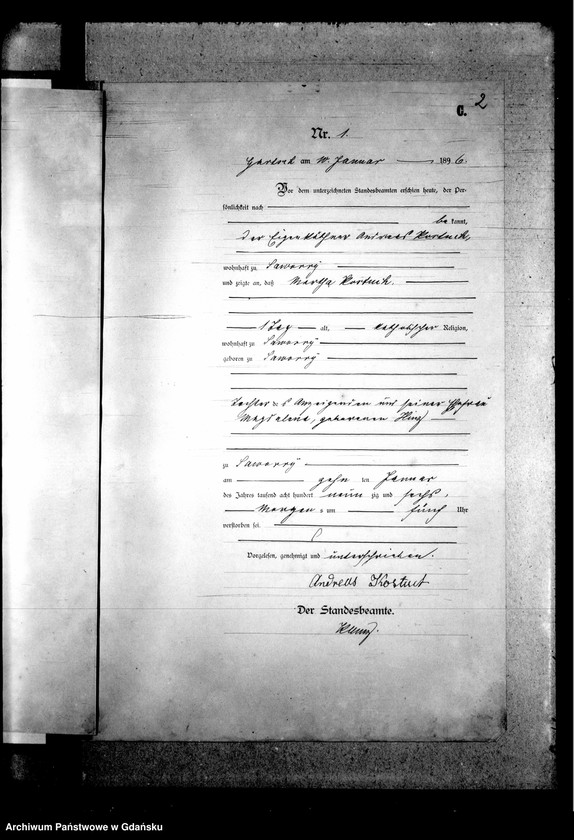 C. 2
Nr. 1.
am 10. Januar 1896.
Vor dem unterzeichneten Standesbeamten erschien heute, der Per-
sönlichkeit nach
be kannt,
der Eigenkäthner Andreas Kostuch,
wohnhaft zu Saworry
und zeigte an, daß Martha Kostuch.
1 Tag alt, katholischer Religion,
wohnhaft zu Saworry
geboren zu Saworry
Tochter des Anzeigenden und seiner Ehefrau
Magdalena, geborenen
zu Saworry
am zehn ten Januar
des Jahres tausend acht hundert neun zig und sechs,
Morgens um fünf Uhr
verstorben sei.
Vorgelesen, genehmigt und unterschrieben.
Andreas Kostuch
Der Standesbeamte.
Archiwum Państwowe w Gdańsku